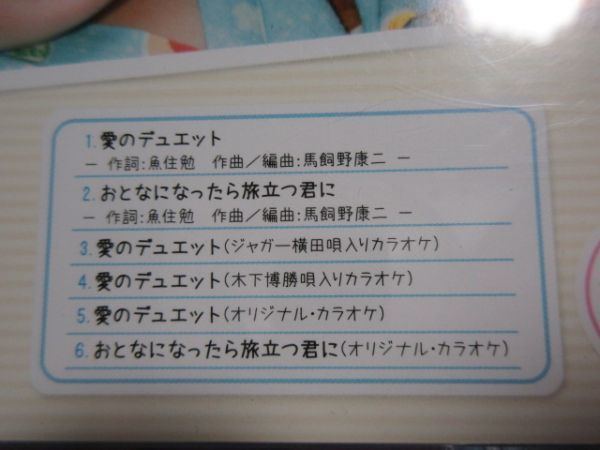 1. 愛のデュエット
― 作詞:魚住勉 作曲／編曲:馬飼野康二 ―
2. おとなになったら旅立つ君に
― 作詞:魚住勉 作曲／編曲:馬飼野康二 ―
3. 愛のデュエット(ジャガー横田唄入りカラオケ)
4. 愛のデュエット(木下博勝唄入りカラオケ)
5. 愛のデュエット(オリジナル・カラオケ)
6. おとなになったら旅立つ君に(オリジナル・カラオケ)